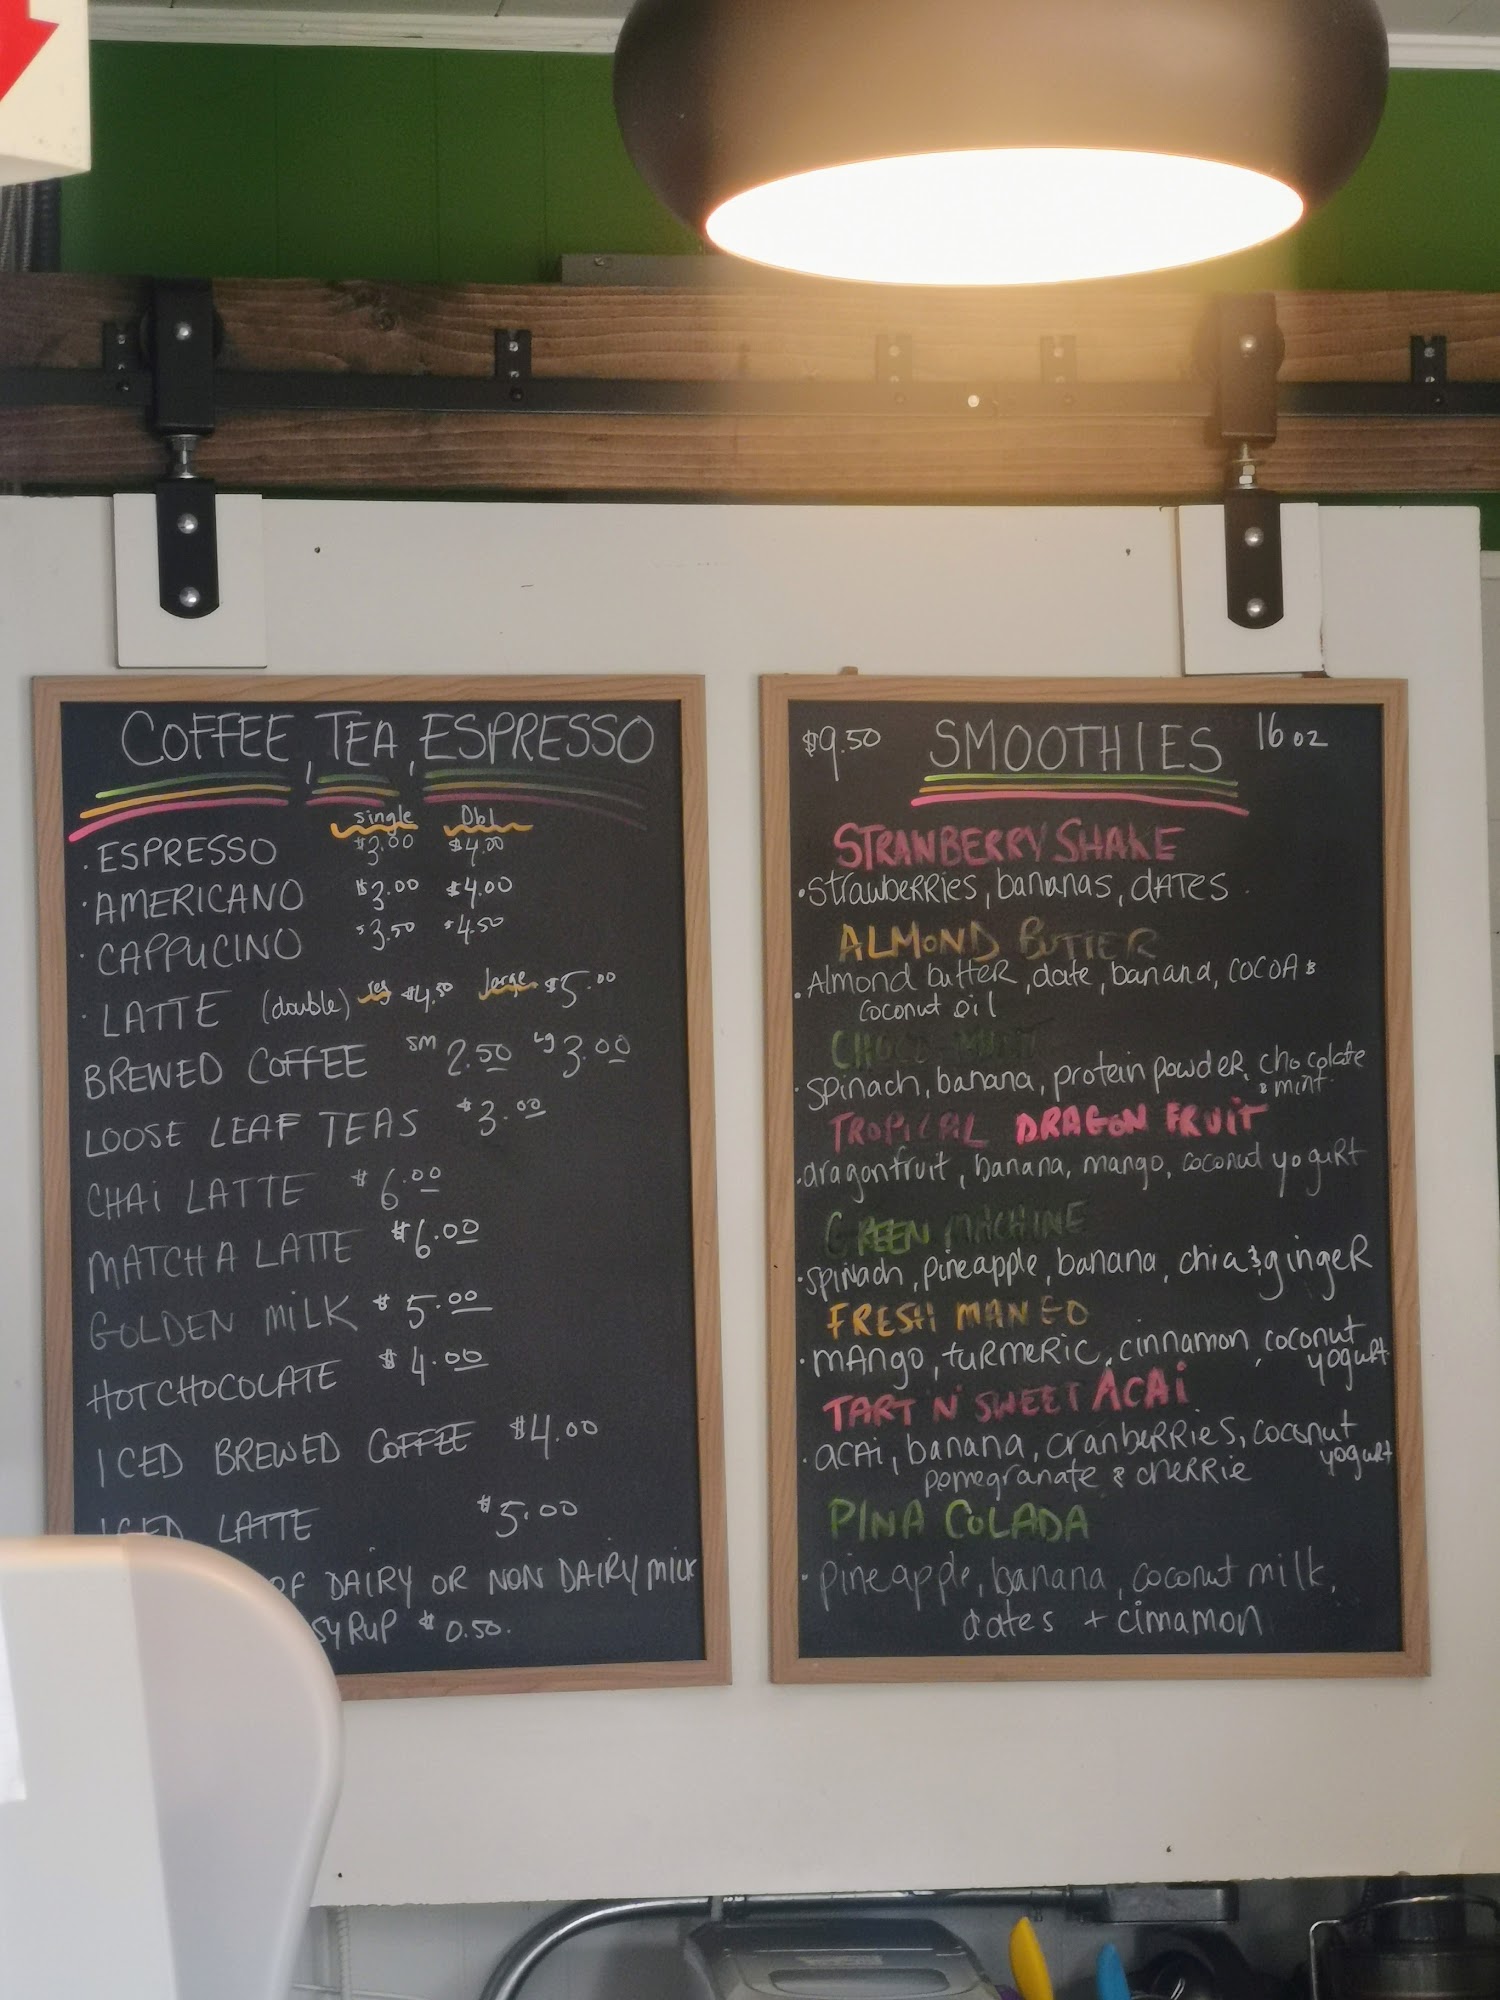 COFFEE, TEA, ESPRESSO
single Dbl
· ESPRESSO $3.00 $4.00
· AMERICANO $3.00 $4.00
· CAPPUCINO $3.50 $4.50
· LATTE (double) reg $4.50 large $5.00
BREWED COFFEE SM 2.50 Lg 3.00
LOOSE LEAF TEAS $3.00
CHAi LATTE $6.00
MATCHA LATTE $6.00
GOLDEN MiLK $5.00
HOT CHOCOLATE $4.00
ICED BREWED COFFEE $4.00
ICED LATTE $5.00
OF DAIRY OR NON DAIRY milk
SYRUP $0.50.
$9.50 SMOOTHIES 16 oz
STRANBERRY SHAKE
· StrawbeRRies, bananas, dATES
ALMOND BUTTER
· Almond butteR, date, banana, COCOA &
coconut oil
CHOCO-MINT
· Spinach, banana, protein powdeR, chocolate
& mint.
TROPICAL DRAGON FRUIT
· dragonfruit, banana, mango, coconut yoguRt
GREEN MACHINE
· Spinach, pineapple, banana, chia & gingeR
FRESH MANGO
· mAngo, tuRmeRic, cinnamon, coconut
yoguRt
TART 'N' SWEET ACAi
· ACAi, banana, cranbeRRieS, coconut
yoguRt
pomegranate & cheRRie
PINA COLADA
· pineapple, banana, coconut milk,
dates + cinnamon